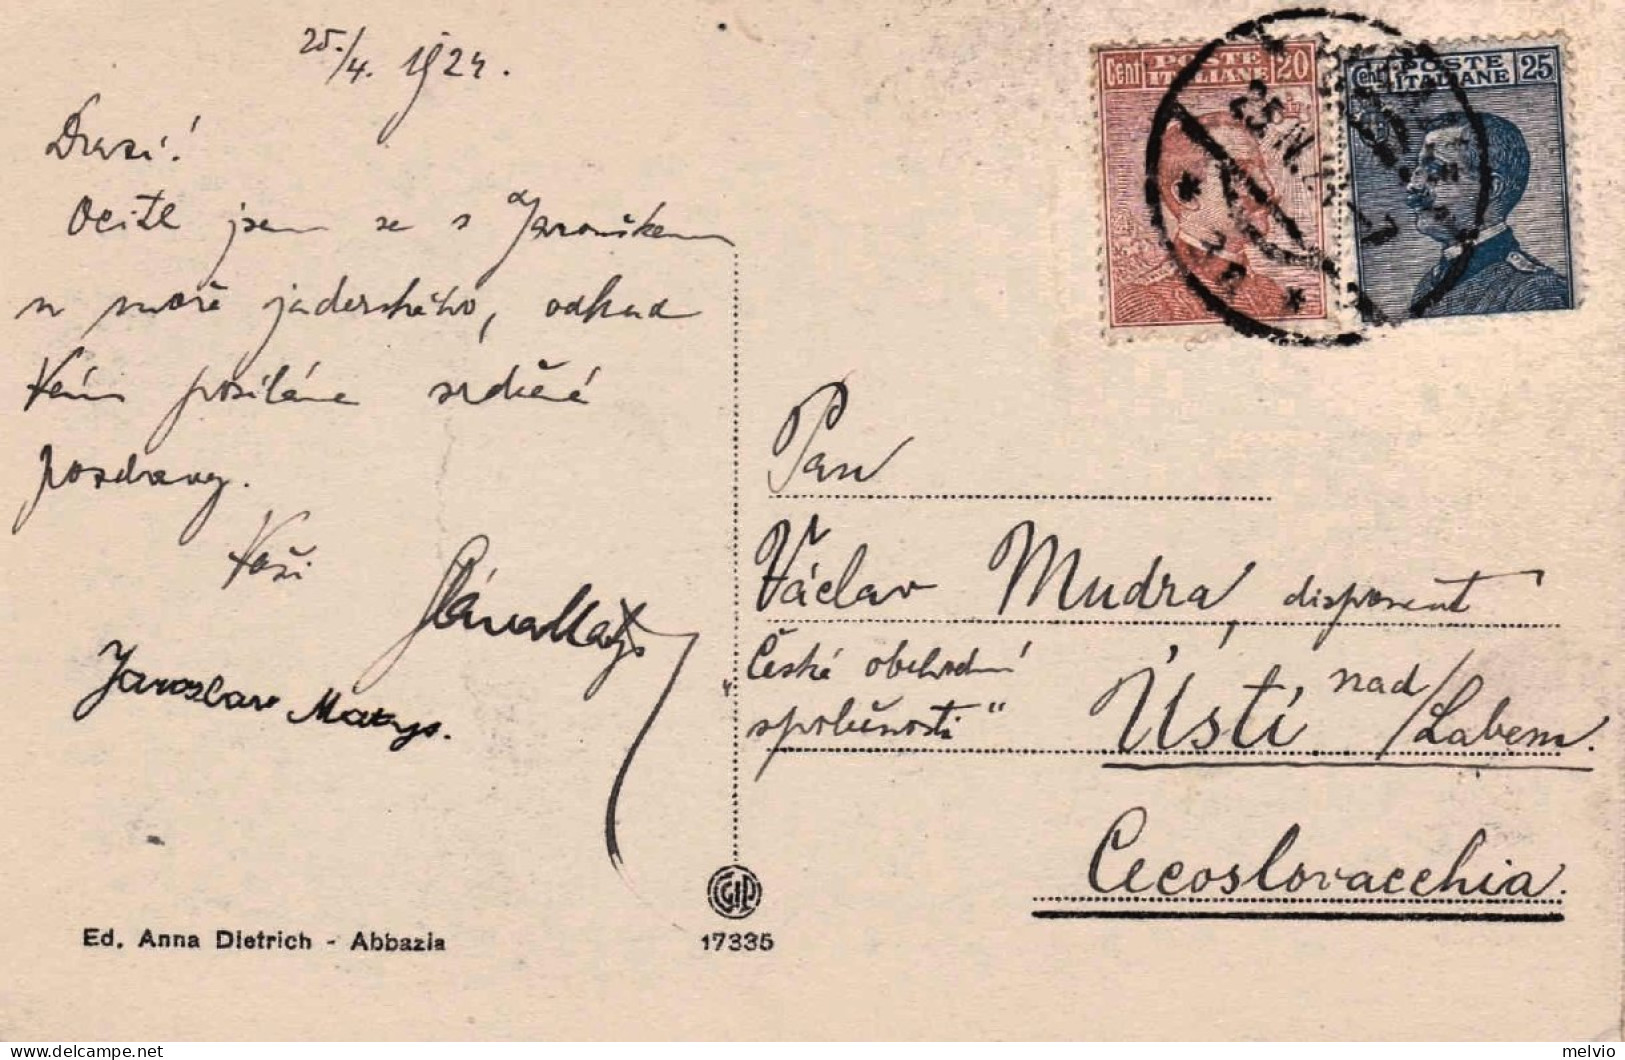 25./4. 1924.
Drazí!
Ocitl jsem se s Jarouškem
u moře jaderského, odkud
Vám posíláme srdečné
pozdravy.
Vaši
Jaroslav Matys.
Cent POSTE ITALIANE 20
Cent POSTE ITALIANE 25
25. IV.
Pan
Václav Mudra, disponent
"České obchodní
společnosti"
Ústí nad/Labem.
Cecoslovacchia.
Ed. Anna Dietrich - Abbazia
17335
melvio